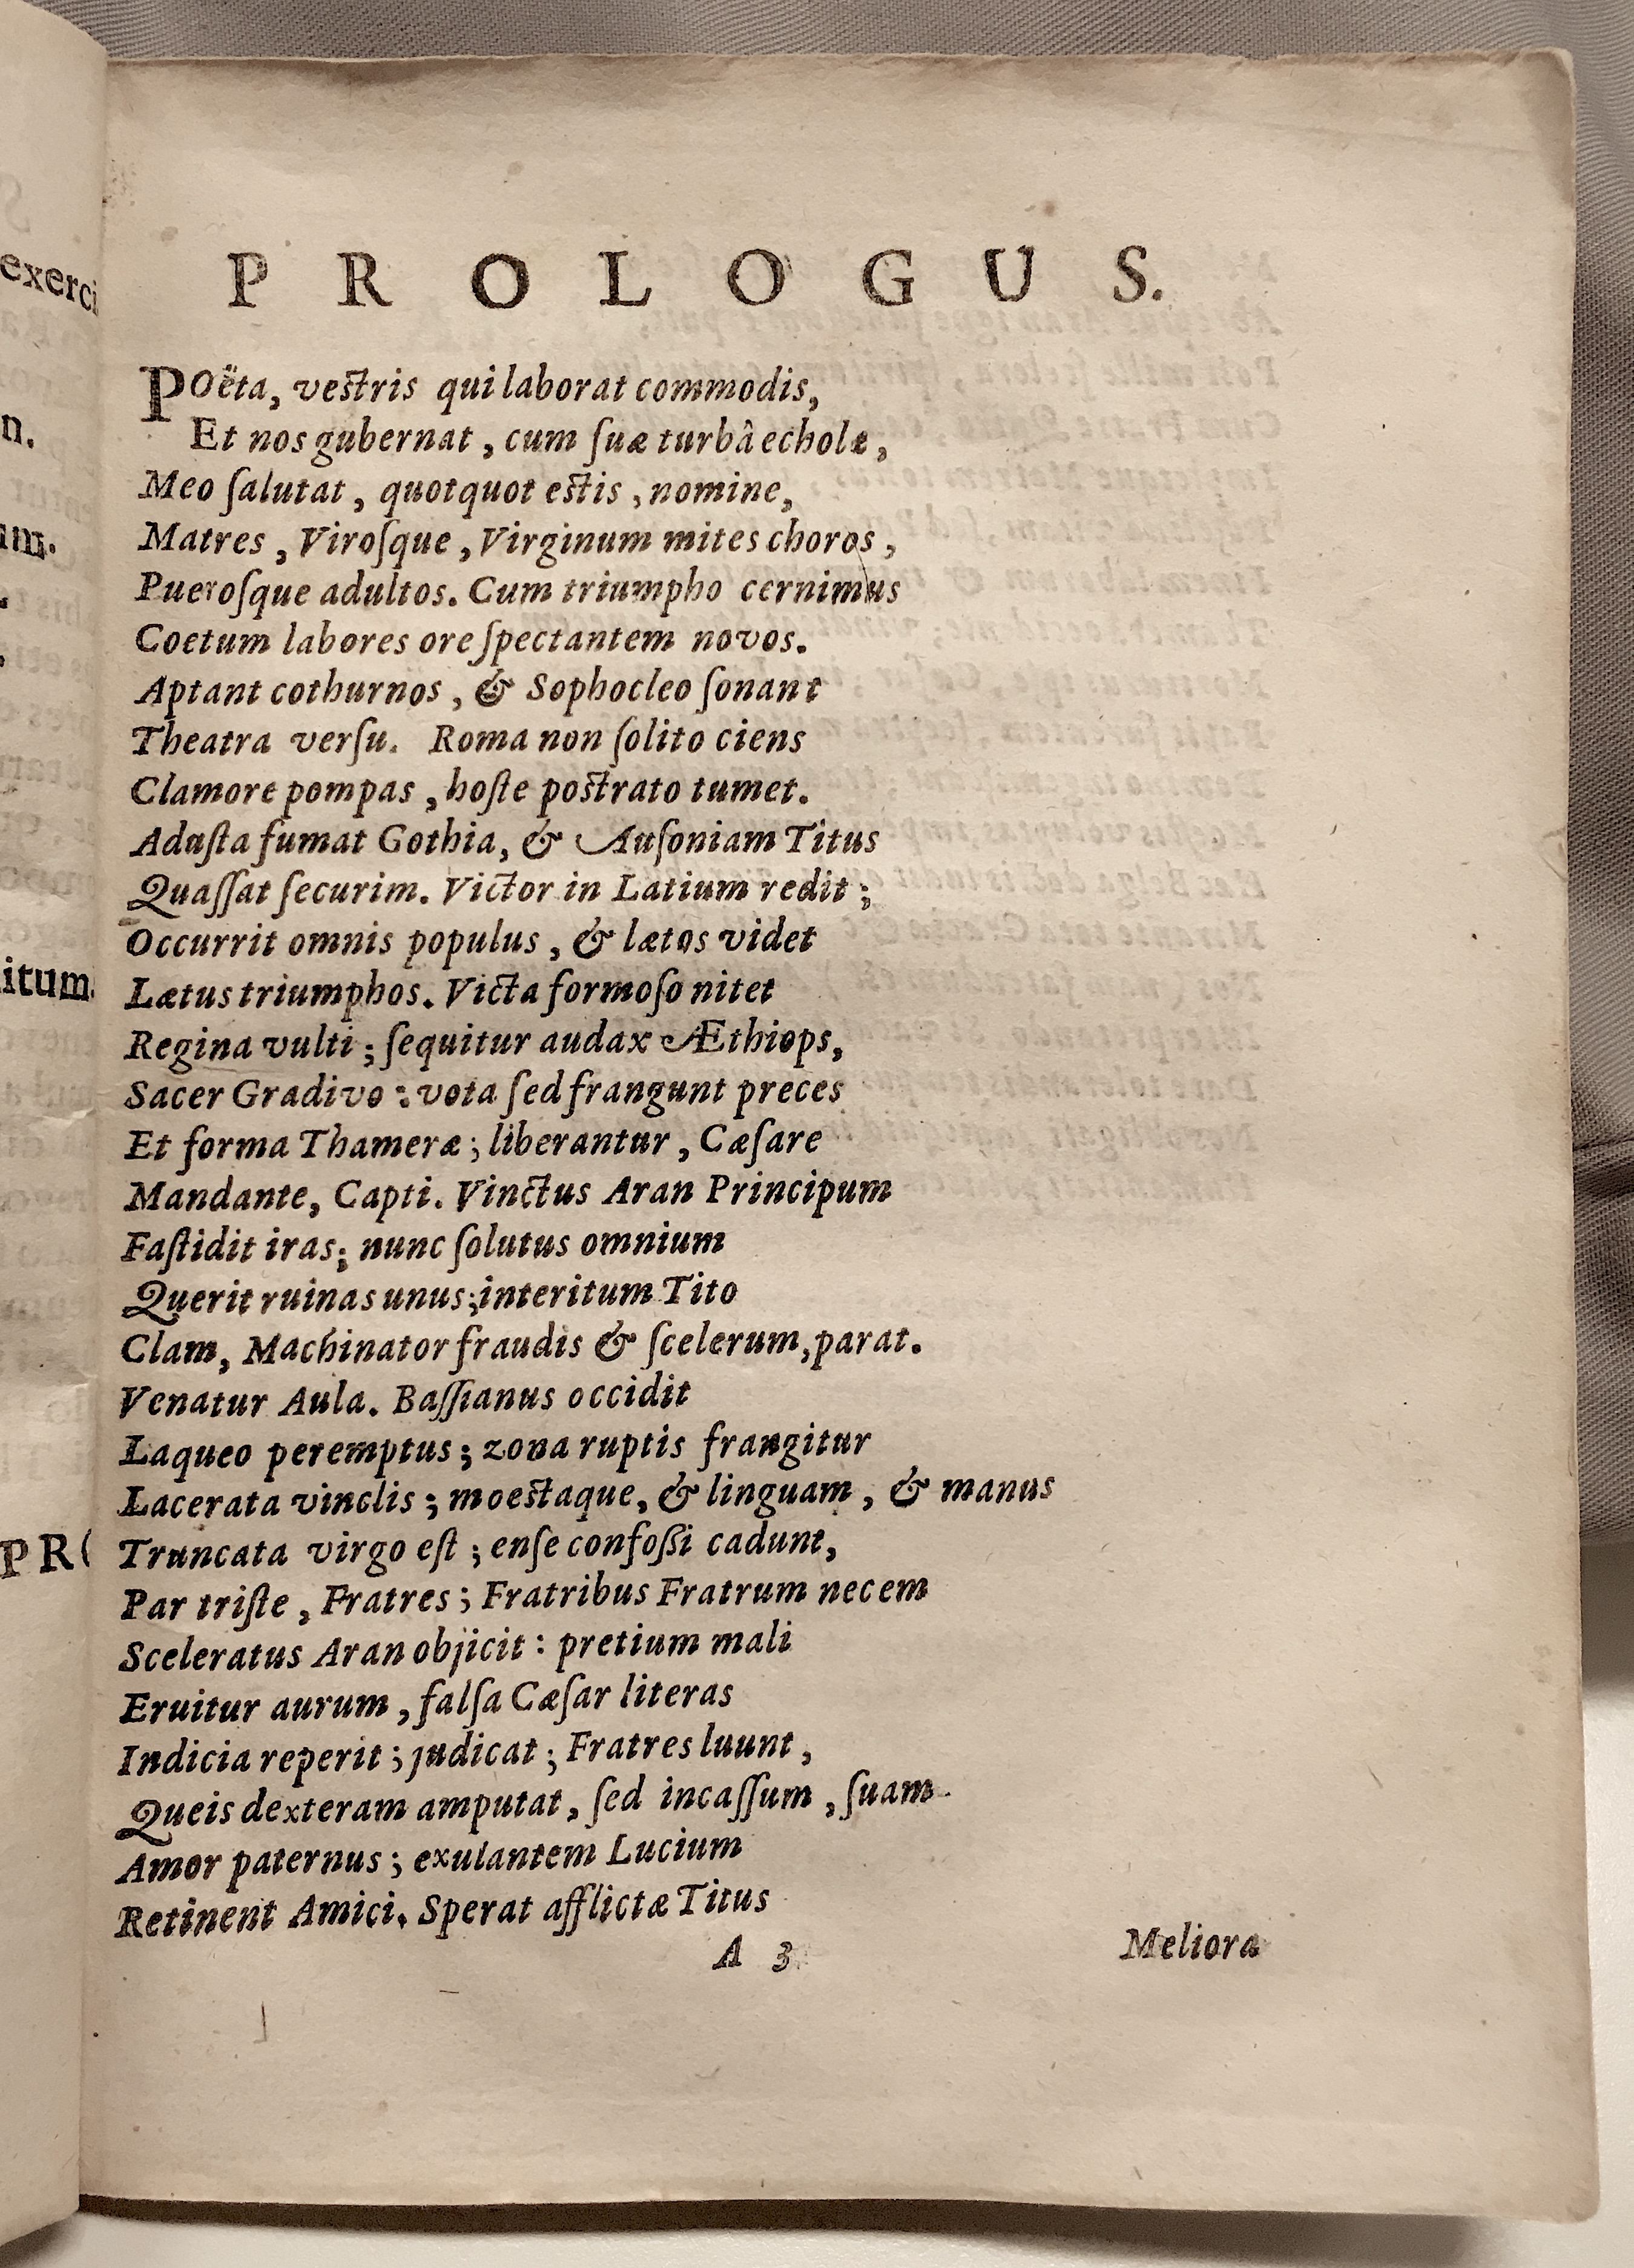 exerci
n.
um.
itum.
PR
PROLOGUS.
POëta, vestris qui laborat commodis,
Et nos gubernat, cum suæ turbâ echolæ,
Meo ſalutat, quotquot estis, nomine,
Matres, Viroſque, Virginum mites choros,
Pueroſque adultos. Cum triumpho cernimus
Coetum labores ore ſpectantem novos.
Aptant cothurnos, & Sophocleo ſonant
Theatra verſu. Roma non ſolito ciens
Clamore pompas, hoſte postrato tumet.
Aduſta fumat Gothia, & Auſoniam Titus
Quaſſat ſecurim. Victor in Latium redit;
Occurrit omnis populus, & lætos videt
Lætus triumphos. Victa formoſo nitet
Regina vulti; ſequitur audax Æthiops,
Sacer Gradivo: vota ſed frangunt preces
Et forma Thameræ; liberantur, Cæſare
Mandante, Capti. Vinctus Aran Principum
Faſtidit iras; nunc ſolutus omnium
Querit ruinas unus; interitum Tito
Clam, Machinator fraudis & ſcelerum, parat.
Venatur Aula. Baſſianus occidit
Laqueo peremptus; zona ruptis frangitur
Lacerata vinclis; moestaque, & linguam, & manus
Truncata virgo eſt; enſe confoſſi cadunt,
Par triſte, Fratres; Fratribus Fratrum necem
Sceleratus Aran objicit: pretium mali
Eruitur aurum, falſa Cæſar literas
Indicia reperit; judicat; Fratres luunt,
Queis dexteram amputat, ſed incaſſum, ſuam
Amor paternus; exulantem Lucium
Retinent Amici. Sperat afflictæ Titus
A 3
Meliora